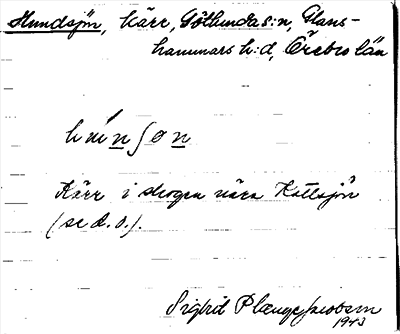 Hundsjön, kärr, Götlunda s:n, Glans-
hammars h:d, Örebro län
Kärr i skogen nära Kottsjön
(se d. o.).
Sigbrit Plænge Jacobson
1943